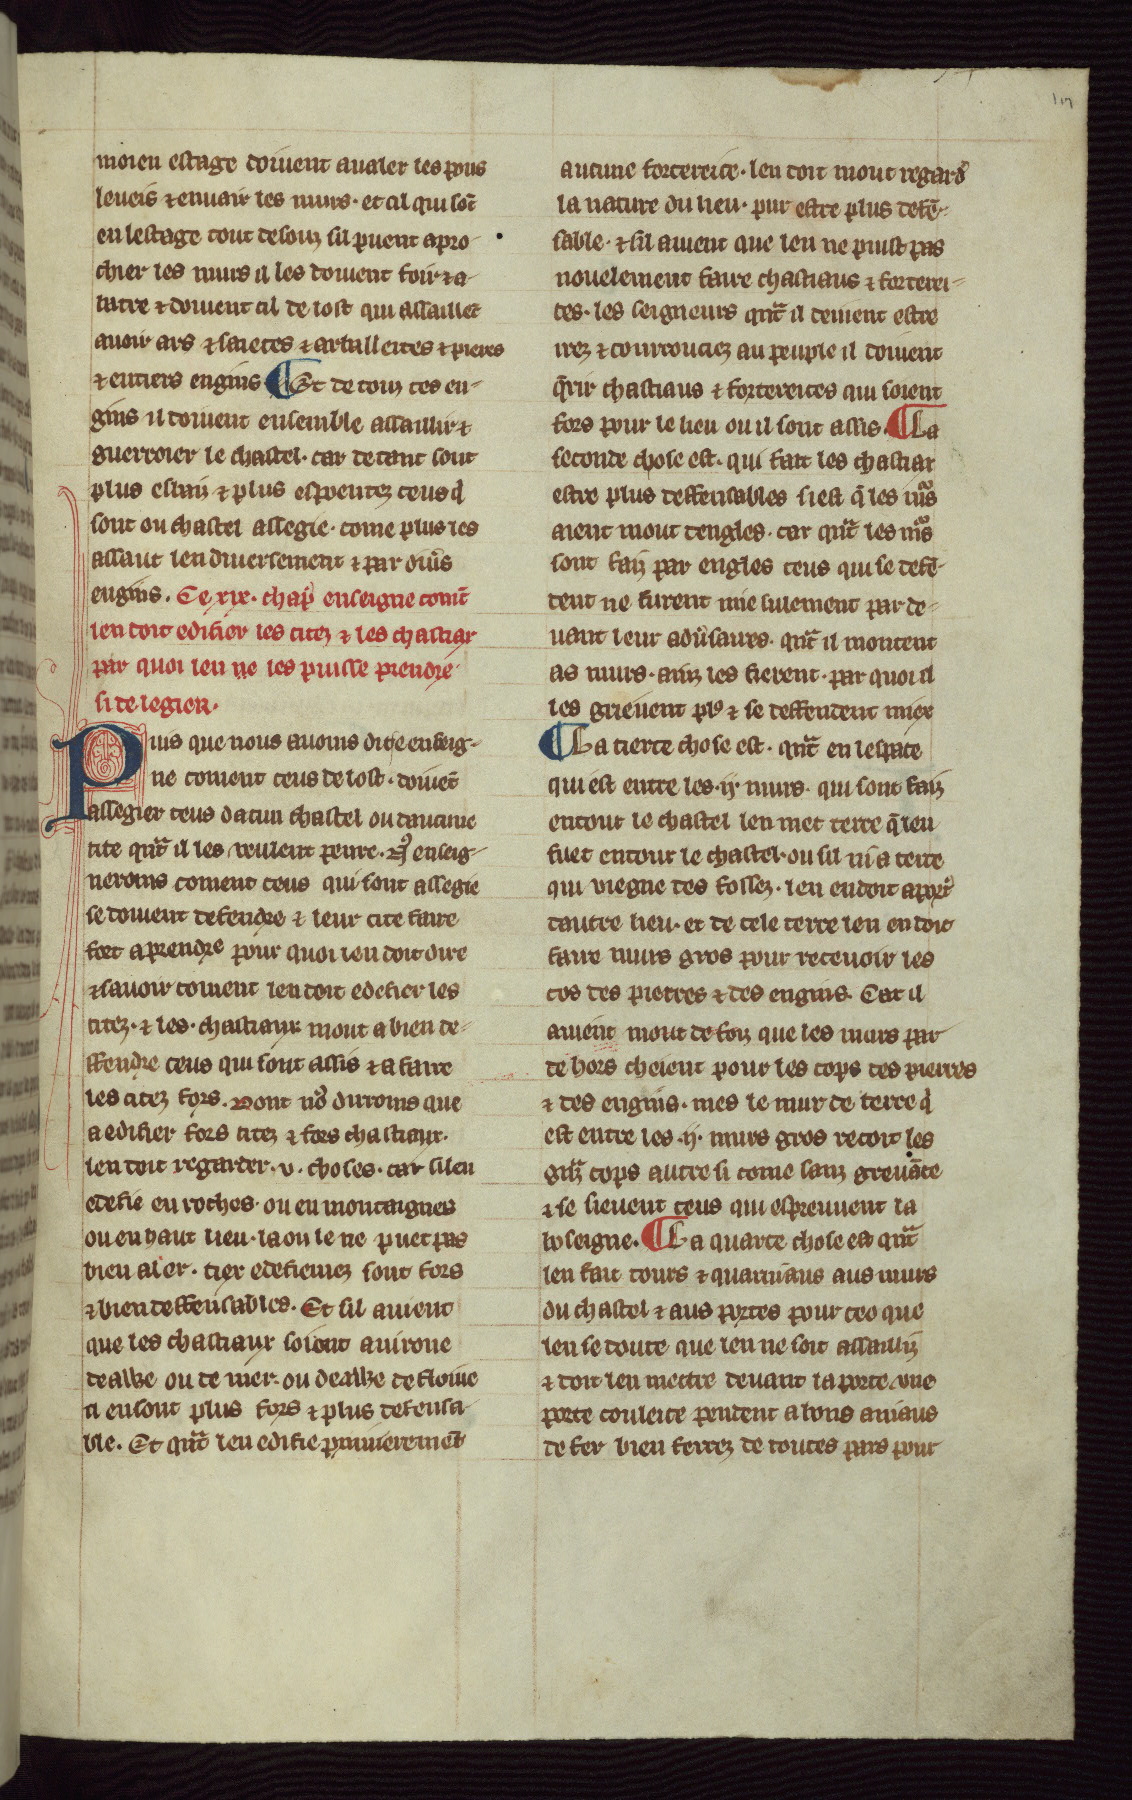 moien estage doiuent aualer les pons
leueis ⁊ enuair les murs· et cil qui sōt
en lestage tout desouz sil puent apro
chier les murs il les doiuent foir ⁊ a-
batre ⁊ doiuent cil de lost qui assaillēt
auoir ars ⁊ saietes ⁊ arballestes ⁊ pieres
⁊ entiers engins ¶ Et de touz ces en-
gins il doiuent ensemble assaillir ⁊
guerroier le chastel· car de tant sont
plus esbaiz ⁊ plus espoentez ceus q̄
sont ou chastel assegie· come plus les
assaut len diuersement ⁊ par diūs
engins. Ce xix· chap̄ enseigne comēt
len doit edifier les citez ⁊ les chastiax
par quoi len ne les puisse prendre
si de legier·
Puis que nous auoms dit ⁊ enseig-
ne coment ceus de lost· doiuēt
assegier ceus dacun chastel ou daucune
cite qūt il les veulent penre· Nꝰ enseig-
neroms coment ceus qui sont assegie
se doiuent defendre ⁊ leur cite faire
fort a prendre pour quoi len doit dire
⁊ sauoir coment len doit edefier les
citez· ⁊ les· chastiaux mout a bien de-
ffendre ceus qui sont assis ⁊ a faire
les citez fors. Dont nꝰ diroms que
a edifier fors citez ⁊ fors chastiaux·
len doit regarder· v· choses· car si len
edefie en roches· ou en montaignes
ou en haut lieu· la ou le ne puet pas
bien aler· tier edefiemēz sont fors
⁊ bien deffensables· Et sil auient
que les chastiaux soient auirone
deawe ou de mer· ou deawe de floiue
il en sont plus fors ⁊ plus defensa-
ble. Et qūt len edifie premierement
aucune forterece· len doit mout regardꝰ
la nature du lieu· pur estre plus defē-
sable· ⁊ sil auient que len ne puist pas
nouelement faire chastiaus ⁊ forterei-
ces· les seigneurs qūt il deiuent estre
irez ⁊ courouciez au peuple il doiuent
q̄rir chastiaus ⁊ fortereices qui soient
fors pour le lieu ou il sont assis. ¶ La
seconde chose est· qui fait les chastiax
estre plus deffensables si est q̄ les mꝰs
aient mout dengles· car qūt les mꝰs
sont faiz par engles ceus qui se defē-
dent ne furent mie sulement par de-
uant leur aduꝰsaires· qūt il montent
as murs· ainz les fierent· par quoi il
les grieuent plꝰ ⁊ se deffendent miex
¶ La tierce chose est· qūt en lespace
qui est entre les· ij· murs· qui sont faiz
entour le chastel len met terre q̄ len
fuet entour le chastel· ou sil ni a terre
qui viegne des fossez· len en doit aportꝰ
dautre lieu· et de cele terre len en doit
faire murs gros pour receuoir les
cos des pierres ⁊ des engins· Car il
auient mout de foiz que les murs par
de hors cheient pour les cops des pierres
⁊ des engins· mes le mur de terre q̄
est entre les· ij· murs gros recoit les
grāz cops autre si come sanz greuāce
⁊ se lieuent ceus qui espreuuent la
beseigne. ¶ La quarte chose est qūt
len fait tours ⁊ quarniaus aus murs
du chastel ⁊ aus portes pour ceo que
len se doute que len ne soit assailliz
⁊ doit len mettre deuant la porte vne
porte couleice pendent a bons aniaus
de fer bien ferrez de toutes pars pour